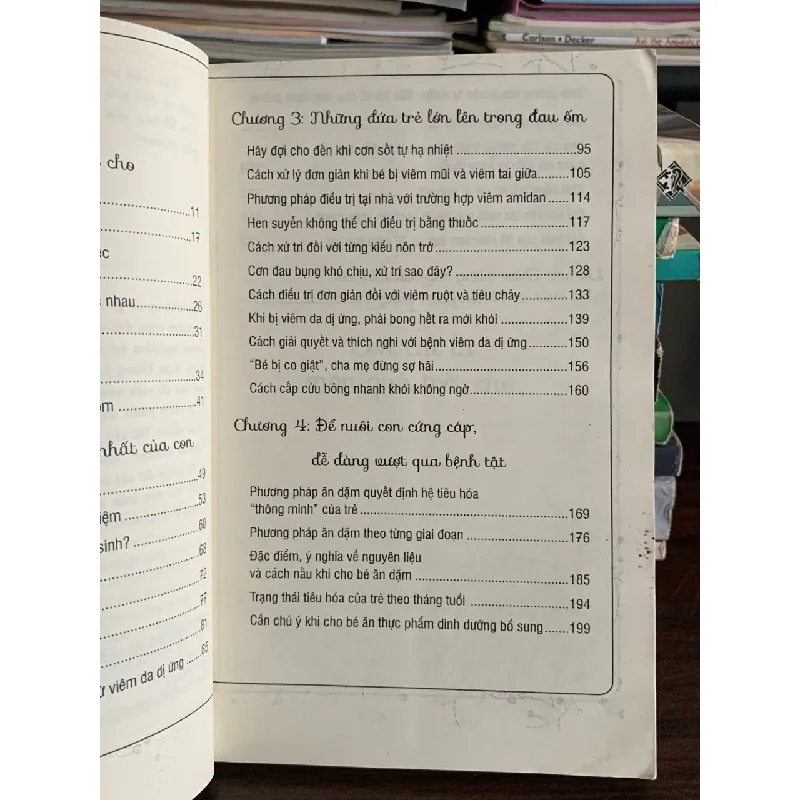 Carlson • Decker
cho
11
17
ệc
22
nhau 26
31
34
ôm 41
nhất của con
49
iệm 53
sinh? 60
68
72
77
81
85
ừ viêm da dị ứng
Chương 3: Những đứa trẻ lớn lên trong đau ốm
Hãy đợi cho đến khi cơn sốt tự hạ nhiệt 95
Cách xử lý đơn giản khi bé bị viêm mũi và viêm tai giữa 105
Phương pháp điều trị tại nhà với trường hợp viêm amidan 114
Hen suyễn không thể chỉ điều trị bằng thuốc 117
Cách xử trí đối với từng kiểu nôn trớ 123
Cơn đau bụng khó chịu, xử trí sao đây? 128
Cách điều trị đơn giản đối với viêm ruột và tiêu chảy 133
Khi bị viêm da dị ứng, phải bong hết ra mới khỏi 139
Cách giải quyết và thích nghi với bệnh viêm da dị ứng 150
“Bé bị co giật”, cha mẹ đừng sợ hãi 156
Cách cấp cứu bỏng nhanh khỏi không ngờ 160
Chương 4: Để nuôi con cứng cáp,
dễ dàng vượt qua bệnh tật
Phương pháp ăn dặm quyết định hệ tiêu hóa
“thông minh” của trẻ 169
Phương pháp ăn dặm theo từng giai đoạn 176
Đặc điểm, ý nghĩa về nguyên liệu
và cách nấu khi cho bé ăn dặm 185
Trạng thái tiêu hóa của trẻ theo tháng tuổi 194
Cần chú ý khi cho bé ăn thực phẩm dinh dưỡng bổ sung 199